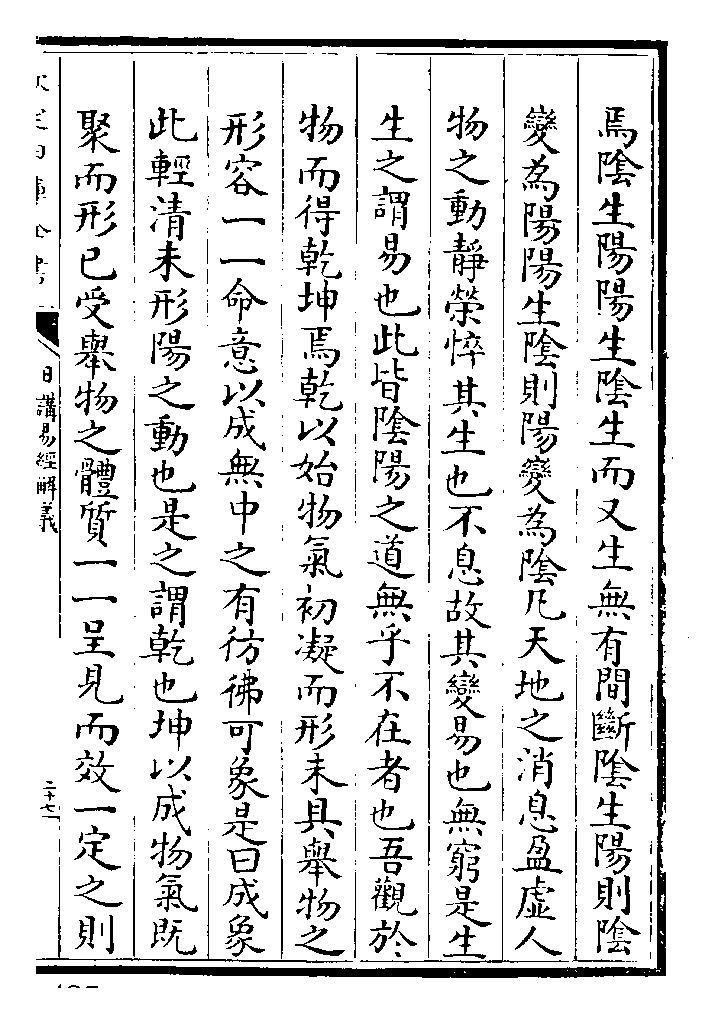 焉陰生陽陽生陰生而又生無有間斷陰生陽則陰
變為陽陽生陰則陽變為陰凡天地之消息盈虛人
物之動靜榮悴其生也不息故其變易也無窮是生
生之謂易也此皆陰陽之道無乎不在者也吾觀於
物而得乾坤焉乾以始物氣初凝而形未具舉物之
形容一一命意以成無中之有彷彿可象是曰成象
此輕清未形陽之動也是之謂乾也坤以成物氣既
聚而形已受舉物之體質一一呈見而效一定之則
日講易經解義
二十七